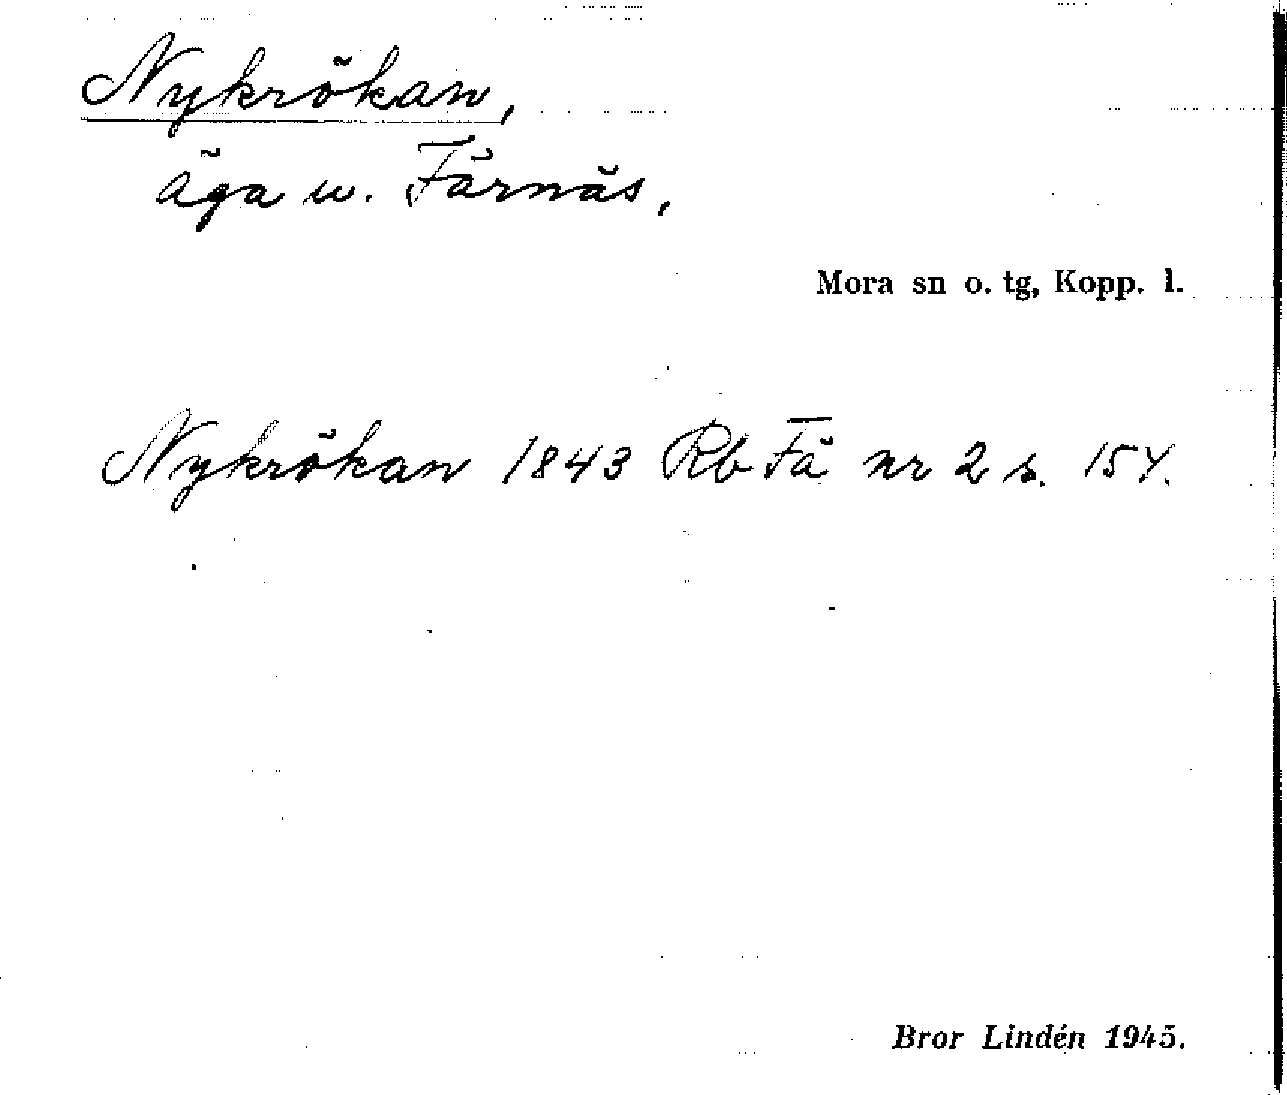 Nykrökan,
äga u. Färnäs,
Mora sn o. tg, Kopp. l.
Nykrökan 1843 Rb Fä nr 2 s. 154.
Bror Lindén 1945.